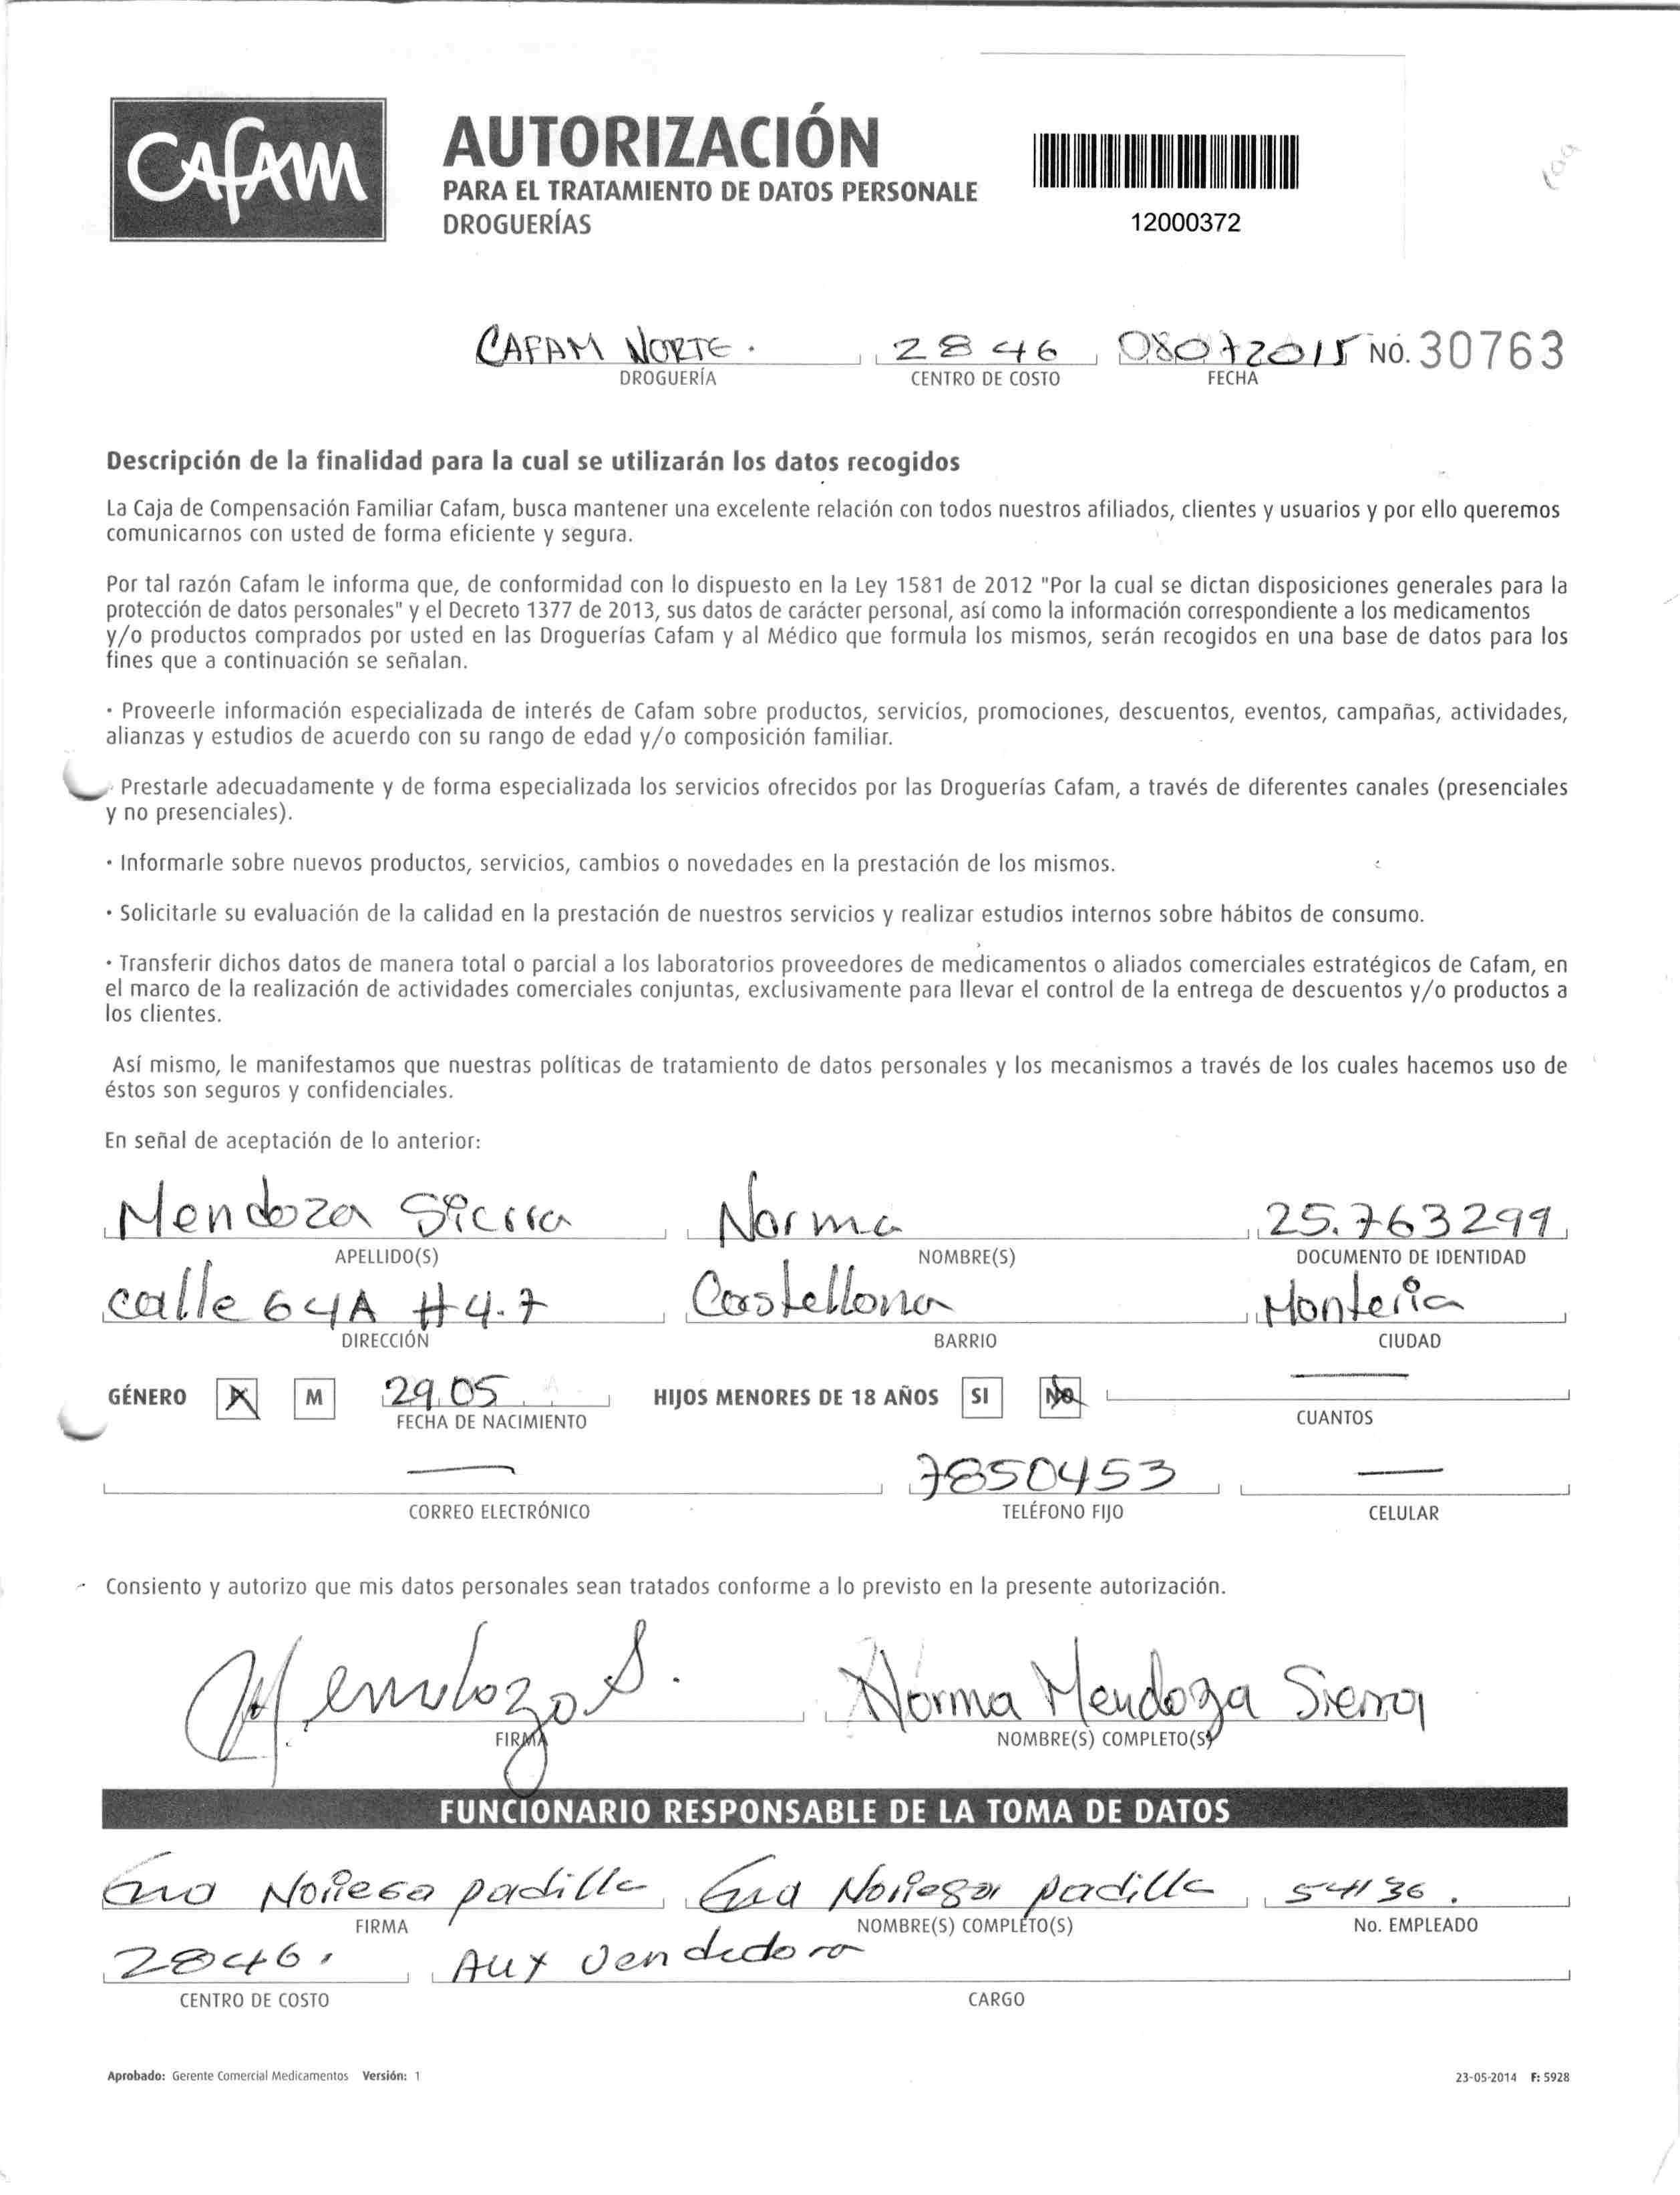 CAFAM
AUTORIZACIÓN
PARA EL TRATAMIENTO DE DATOS PERSONALE
DROGUERÍAS
12000372
CAFAM NORTE.
2846
08072015
NO. 30763
DROGUERÍA
CENTRO DE COSTO
FECHA
Descripción de la finalidad para la cual se utilizarán los datos recogidos
La Caja de Compensación Familiar Cafam, busca mantener una excelente relación con todos nuestros afiliados, clientes y usuarios y por ello queremos
comunicarnos con usted de forma eficiente y segura.
Por tal razón Cafam le informa que, de conformidad con lo dispuesto en la Ley 1581 de 2012 "Por la cual se dictan disposiciones generales para la
protección de datos personales" y el Decreto 1377 de 2013, sus datos de carácter personal, así como la información correspondiente a los medicamentos
y/o productos comprados por usted en las Droguerías Cafam y al Médico que formula los mismos, serán recogidos en una base de datos para los
fines que a continuación se señalan.
· Proveerle información especializada de interés de Cafam sobre productos, servicios, promociones, descuentos, eventos, campañas, actividades,
alianzas y estudios de acuerdo con su rango de edad y/o composición familiar.
· Prestarle adecuadamente y de forma especializada los servicios ofrecidos por las Droguerías Cafam, a través de diferentes canales (presenciales
y no presenciales).
· Informarle sobre nuevos productos, servicios, cambios o novedades en la prestación de los mismos.
· Solicitarle su evaluación de la calidad en la prestación de nuestros servicios y realizar estudios internos sobre hábitos de consumo.
· Transferir dichos datos de manera total o parcial a los laboratorios proveedores de medicamentos o aliados comerciales estratégicos de Cafam, en
el marco de la realización de actividades comerciales conjuntas, exclusivamente para llevar el control de la entrega de descuentos y/o productos a
los clientes.
Así mismo, le manifestamos que nuestras políticas de tratamiento de datos personales y los mecanismos a través de los cuales hacemos uso de
éstos son seguros y confidenciales.
En señal de aceptación de lo anterior:
Mendoza Sierra Norma 25.763299
APELLIDO(S) NOMBRE(S) DOCUMENTO DE IDENTIDAD
calle 64A #4.7 Castellana Monteria
DIRECCIÓN BARRIO CIUDAD
GÉNERO X M 29 05 HIJOS MENORES DE 18 AÑOS SI NO —
FECHA DE NACIMIENTO CUANTOS
— 7850453 —
CORREO ELECTRÓNICO TELÉFONO FIJO CELULAR
Consiento y autorizo que mis datos personales sean tratados conforme a lo previsto en la presente autorización.
Mendoza S. Norma Mendoza Sierra
FIRMA NOMBRE(S) COMPLETO(S)
FUNCIONARIO RESPONSABLE DE LA TOMA DE DATOS
Noriega padilla Noriega padilla 54136.
FIRMA NOMBRE(S) COMPLETO(S) No. EMPLEADO
2846. Aux vendedora
CENTRO DE COSTO CARGO
Aprobado: Gerente Comercial Medicamentos Versión: 1 23-05-2014 F: 5928